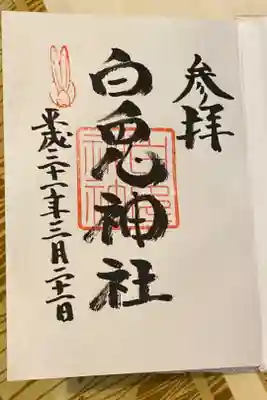 参拝
白兎神社
平成二十一年三月二十一日